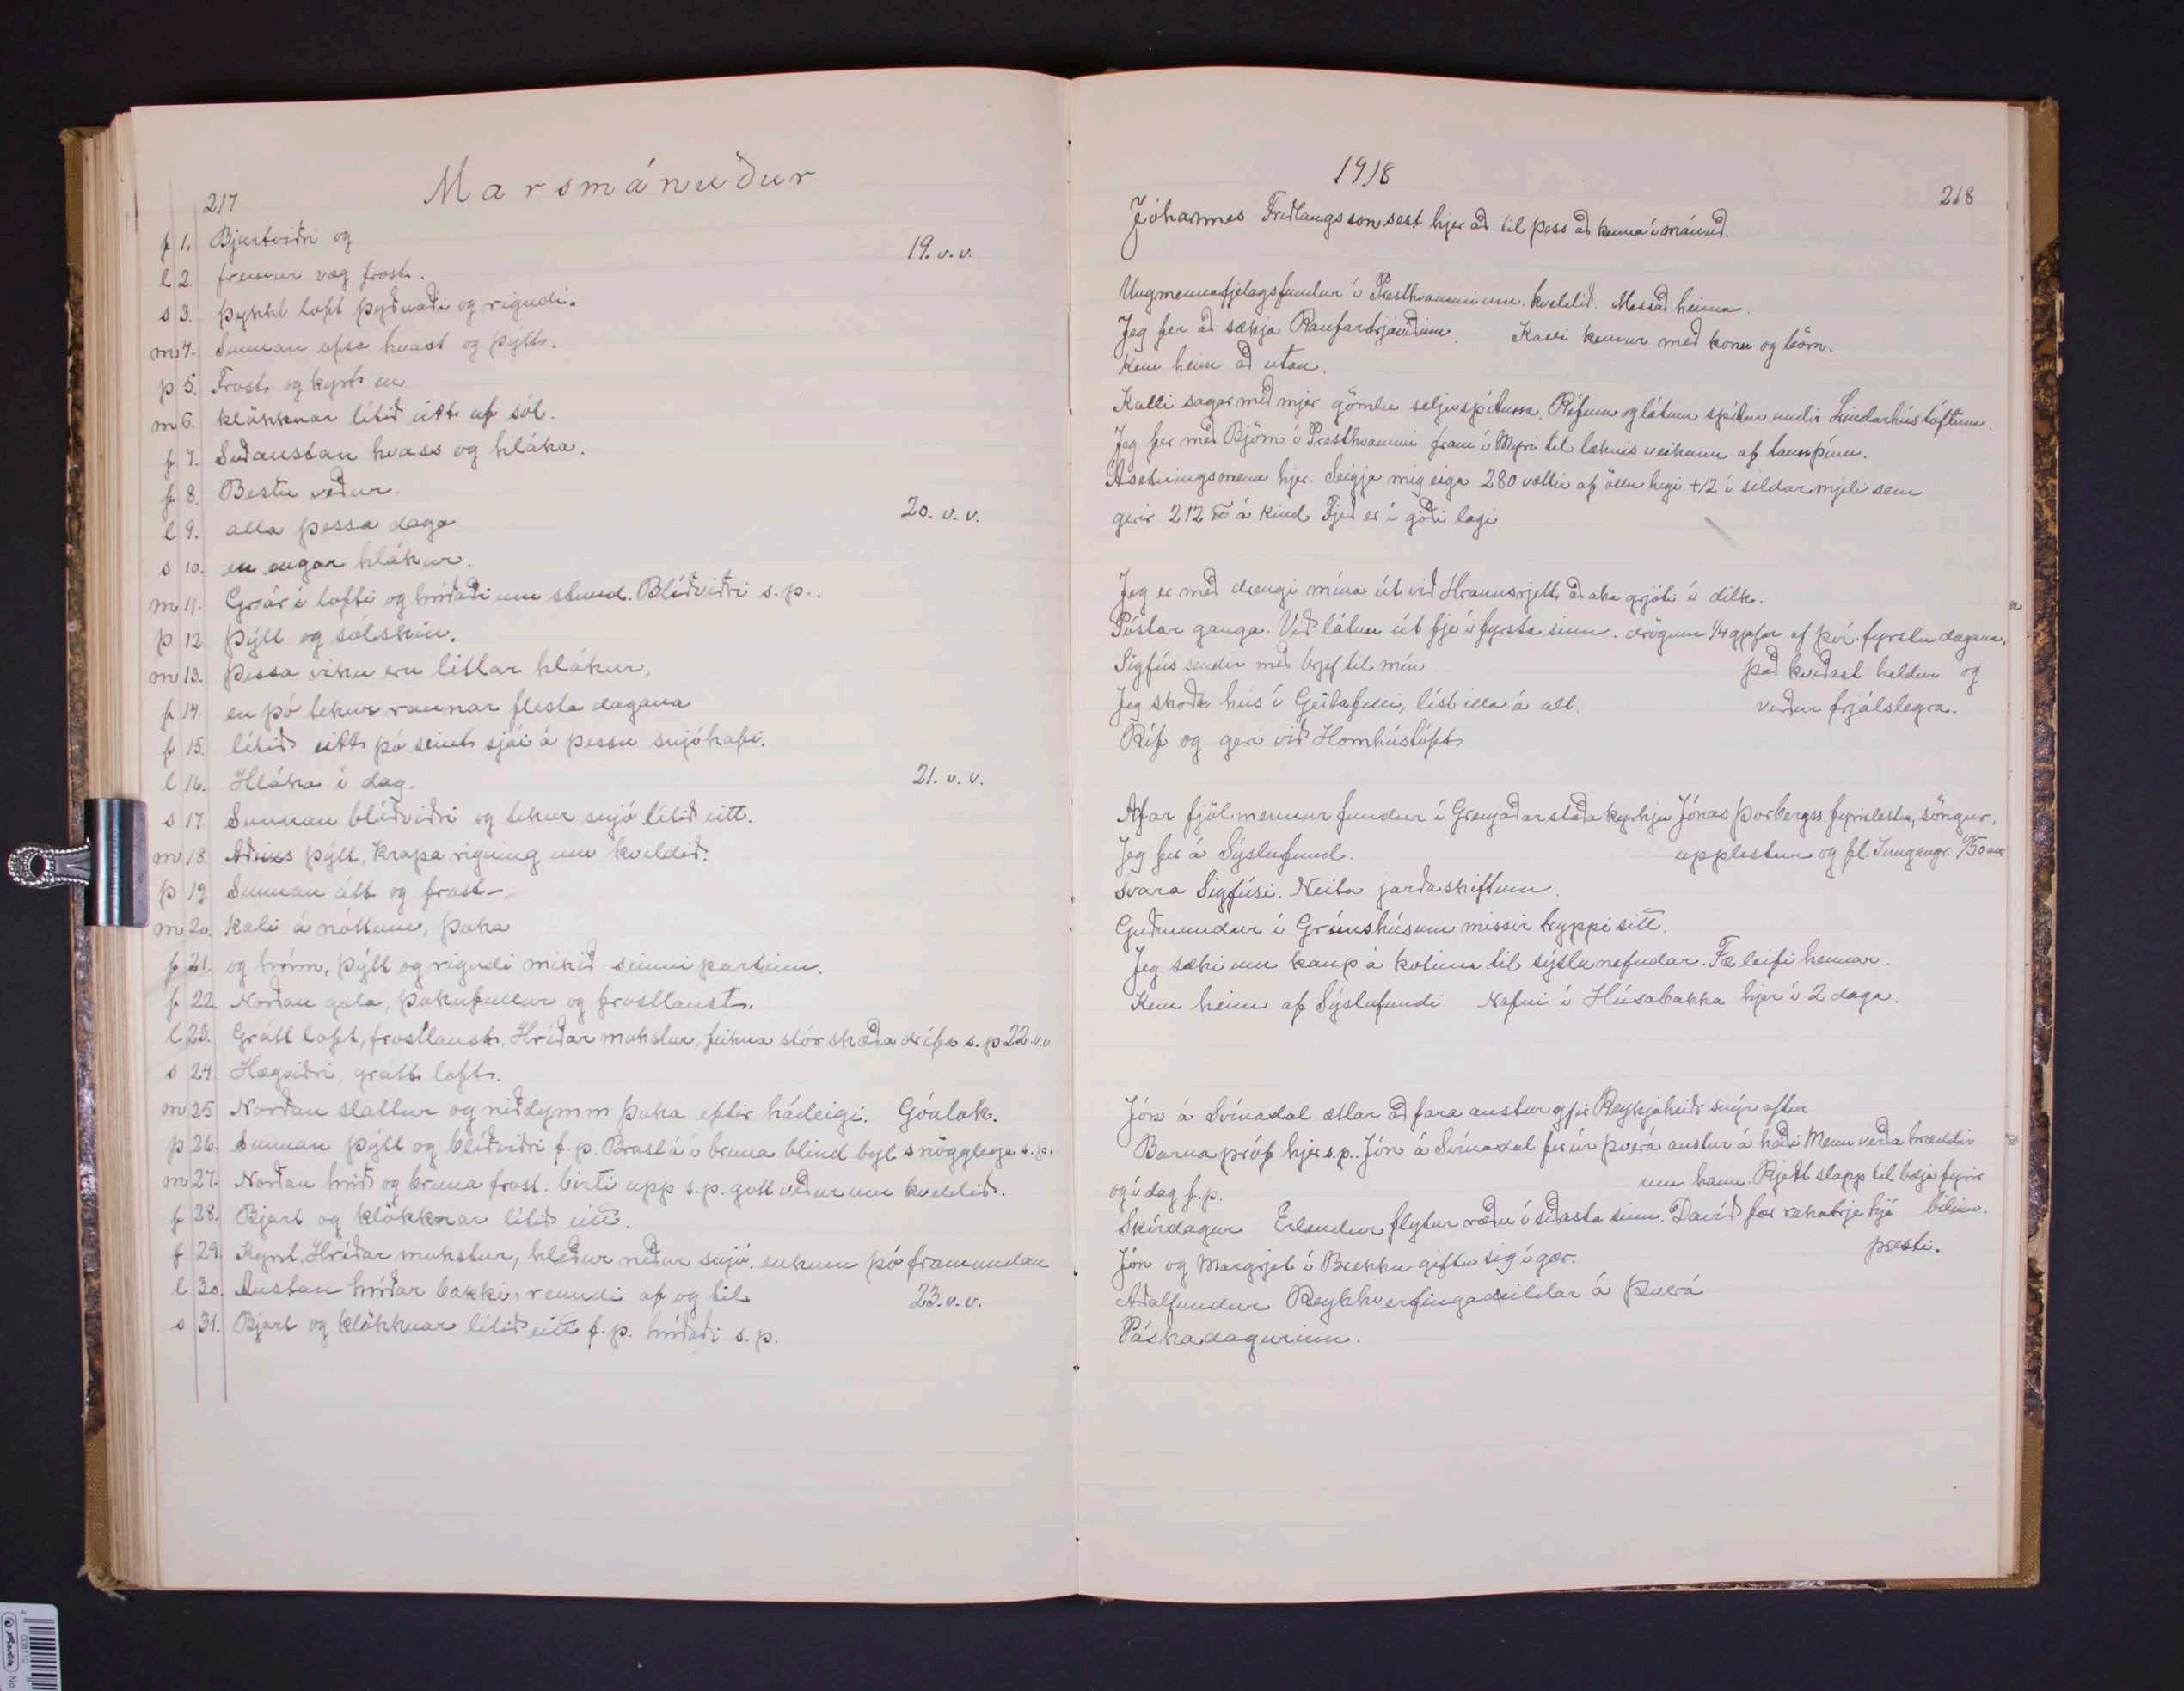 Marsmánuður
217
f 1. Bjartviðri og
19. v. v.
l 2. fremur væg frost.
s 3. þykkt loft þyðnaði og rigndi.
m 4. Sunnan ofsa hvast og þýtt.
þ 5. Frost og kyrt en
m 6. klökknar lítið eitt af sól.
f 7. Suðaustan hvass og hláka.
f 8. Bestu veður
l 9. alla þessa daga
20. v. v.
s 10. en engar hlákur.
m 11. Grár í lofti og hríðaði um stund. Blíðviðri s. p..
þ 12 Þýtt og sólskin.
m 13. Þessa viku eru litlar hlákur,
f 14 en þó tekur raunar flesta dagana
f 15. lítið eitt þó seint sjái á þessu snjóhafi.
l 16. Hláka í dag.
21. v. v.
s 17. Sunnan blíðviðri og tekur snjó lítið eitt.
m 18. Aðeins þýtt, krapa rigning um kveldið.
þ 19 Sunnan átt og frost-
m 20. kali á nóttum, þoka
f 21. og hrím, þýtt og rigndi mikið seinni partinn.
f 22. Norðan gola, þokufullur og frostlaust.
l 23. Grátt loft, frostlaust. Hríðar mokstur, feikna stór skæða drífa s. p 22 v.v
s 24. Hægviðri, grátt loft.
m 25 Norðan slattur og niðdymm þoka eftir hádeigi. Góulok.
þ 26. Sunnan þýtt og blíðviðri f. p. Brast á í bruna blind byl snögglega s. p.
m 27. Norðan hríð og bruna frost. birti upp s. p. gott veður um kveldið.
f 28. Bjart og klökknar lítið eitt.
f 29. Kyrt. Hríðar mokstur, hleður niður snjó. enkum þó framundan
l 30. Austan hríðar bakki, renndi af og til
23. v. v.
s 31. Bjart og klökknar lítið eitt f. p. hríðaði s. p.
1918
218
Jóhannes Friðlaugsson sest hjer að til þess að kenna í mánuð.
Ungmennafjelagsfundur í Presthvammi um kveldið. Messað heima.
Jeg fer að sækja Raufartrjáviðinn. Kalli kemur með konu og börn.
Kem heim að utan.
Kalli sagar með mjer gömlu seljuspítuna. Rífum og látum spítur undir Lindarhústóftum.
Jeg fer með Björn í Presthvammi fram í Mýri til læknis veikann af tannpínu.
Ásetningsmenn hjer. Seigja mig eiga 280 vættir af öllu heyi + 12 í síldarmjeli sem
gerir 212 ℔ á kind Fjeð er í góði lagi
Jeg er með drengi mína út við Hraunsrjett að aka grjóti í dilk.
Póstar ganga. Við látum út fje í fyrsta sinn. drögum 1/4 gjafar af því fyrstu dagana,
Sigfús sendir með brjef til mín það kviðast heldur og
Jeg skoða hús í Geitafelli, líst illa á alt. verður frjálslegra.
Ríf og geri við Hornhústóft
Afar fjölmennur fundur í Grenjaðarstaða kyrkju Jónas Þorbergss. fyrirlestur, söngur,
Jeg fer á Sýslufund. upplestur og fl. Inngangr. 1/50 aur
Svara Sigfúsi. Neita jarðaskiftum.
Guðmundur í Grímshúsum missir tryppi sitt.
Jeg sæki um kaup á kotinu til sýslunefndar. Fæ leifi hennar.
Kem heim af Sýslufundi Nafni í Húsabakka hjer í 2 daga.
Jón á Svínadal ætlar að fara austur yfir Reykjaheiði snýr aftur
Barna próf hjer s.p. Jón á Svínadal fer úr Þverá austur á heiði Menn verða hræddir
og í dag f. p. um hann. Rjett slapp til bæja fyrir
Skírdagur Erlendur flytur ræðu í síðasta sinn. Davíð fær rekatrje hjá bilinn.
Jón og Margrjet í Brekku giftu sig í gær. presti.
Aðalfundur Reykhverfingadeildar á Þverá
Páskadagurinn.